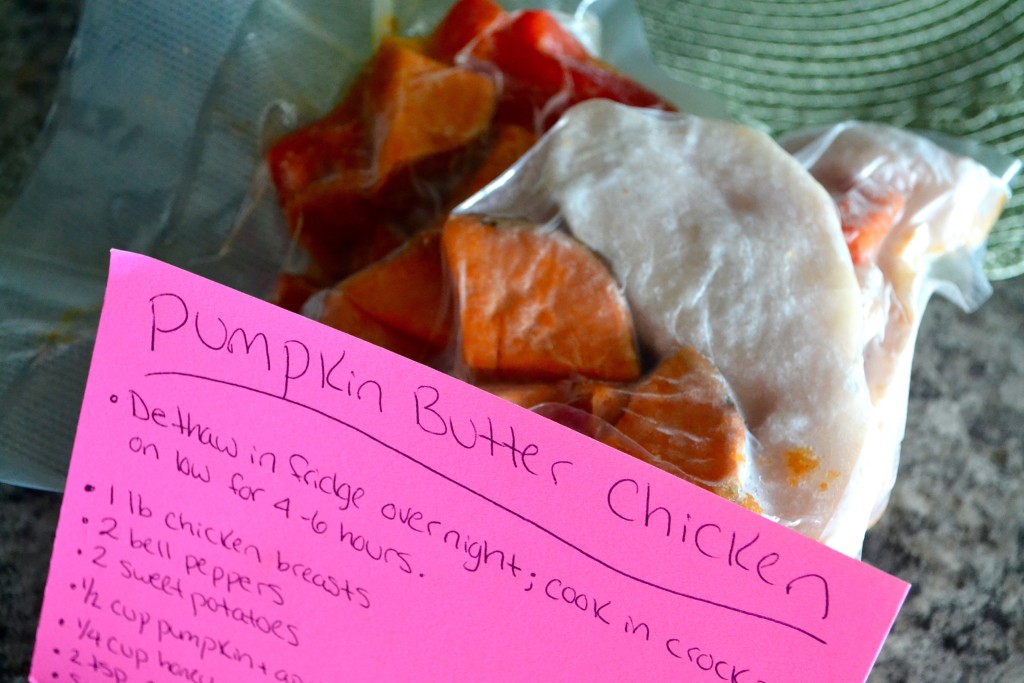 Pumpkin Butter Chicken
• Dethaw in fridge overnight; cook in crock-
on low for 4-6 hours.
• 1 lb chicken breasts
• 2 bell peppers
• 2 sweet potatoes
• 1/2 cup pumpkin +
• 1/4 cup honey
• 2 tsp